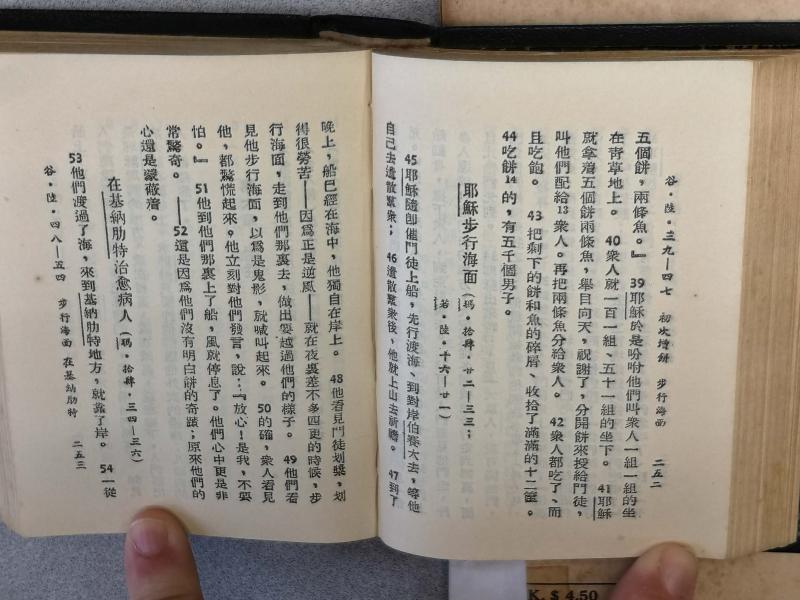 谷·陸·三九—四七　初次增餅　步行海面　二五二
五個餅，兩條魚。』39 耶穌於是吩咐他們叫衆人一組一組的坐
在靑草地上。40 衆人就一百一組、五十一組的坐下。41 耶穌
就拿着五個餅兩條魚，舉目向天，祝謝了，分開餅來授給門徒，
叫他們配給13衆人。再把兩條魚分給衆人。42 衆人都吃了，而
且吃飽。43 把剩下的餅和魚的碎屑、收拾了滿滿的十二筐。
44 吃餅14的，有五千個男子。
耶穌步行海面（瑪·拾肆，廿二—三三；
若·陸·十六—廿一）
45 耶穌隨卽催門徒上船，先行渡海、到對岸伯賽大去，等他
自己去遣散羣衆；46 遣散羣衆後，他就上山去祈禱。47 到了
晚上，船已經在海中，他獨自在岸上。48 他看見門徒划槳，划
得很勞苦——因爲正是逆風——就在夜裏差不多四更的時候，步
行海面，走到他們那裏去，做出要越過他們的樣子。49 他們看
見他步行海面，以爲是鬼影，就喊叫起來。50 的確，衆人看見
他，都驚慌起來。他立刻對他們發言，說：『放心！是我，不要
怕。』51 他到他們那裏上了船，風就停息了。他們心中更是非
常驚奇。——52 這是因爲他們沒有明白餅的奇蹟；原來他們的
心還是蒙蔽着。
在基納肋特治愈病人（瑪·拾肆，三四—三六）
53 他們渡過了海，來到基納肋特地方，就靠了岸。54 一從
谷·陸·四八—五四　步行海面　在基納肋特　二五三
K. $ 4.50